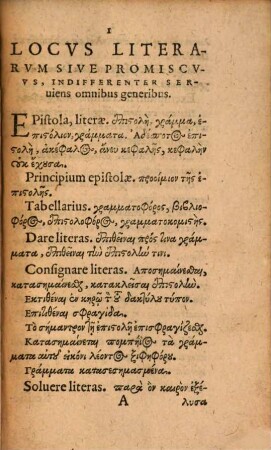 1
LOCVS LITERA-
RVM SIVE PROMISCV-
VS, INDIFFERENTER SER-
uiens omnibus generibus.
EPistola, literæ. ἐπιστολὴ, γράμμα, ἐ-
πιστόλιον, γράμματα. Ἀδέσποτος ἐπι-
στολὴ, ἀκέφαλος, ἄνευ κεφαλῆς, κεφαλὴν
οὐκ ἔχουσα.
Principium epistolæ. προοίμιον τῆς ἐ-
πιστολῆς.
Tabellarius. γραμματοφόρος, βιβλιο-
φόρος, ἐπιστολοφόρος, γραμματοκομιστής.
Dare literas. ἐπιθεῖναι πρός τινα γράμ-
ματα, ἐπιθεῖναι τὴν ἐπιστολὴν τινι.
Consignare literas. Ἀποσημαίνεσθαι,
κατασημαίνεσθαι, κατακλεῖσαι ἐπιστολήν.
Ἐκτιθέναι ἐν κηρῷ τοῦ δακτύλου τύπον.
Ἐπιτιθέναι σφραγῖδα.
Τὸ σήμαντρον τῇ ἐπιστολῇ ἐπισφραγίζεσθαι.
Κατασημαίνεται πομπήιος τὰ γράμ-
ματα αὐτοῦ εἰκόνι λέοντος ξιφηφόρου.
Γράμματα κατασεσημασμένα.
Soluere literas. παρὰ ὃν καιρὸν ἐξέ-
A λυσα